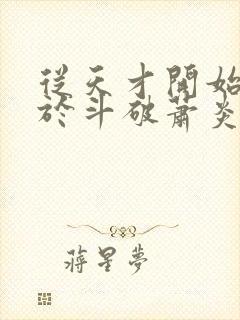 從天才開始
於斗破蕭炎
蔣星夢